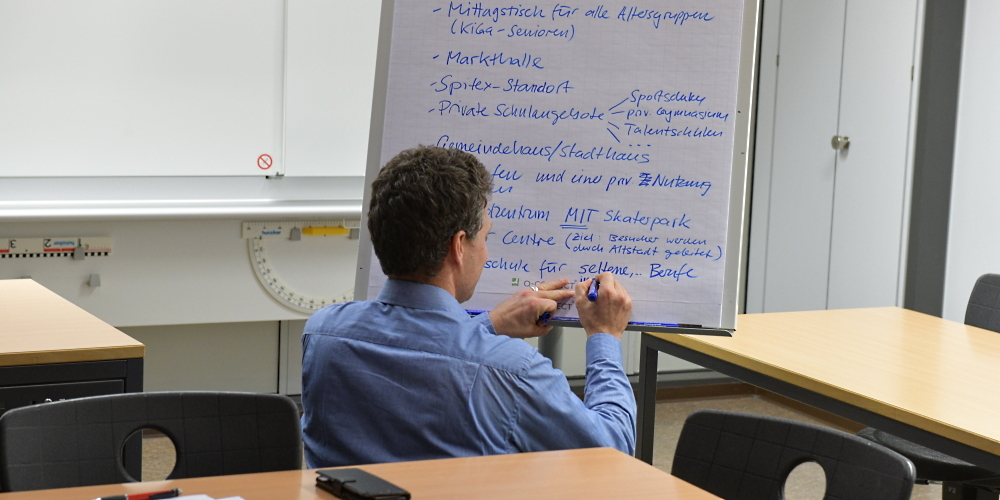 - Mittagstisch für alle Altersgruppen
(KiGa - Senioren)
- Markthalle
- Spitex-Standort
- Private Schulangebote
Sportschulen
priv. Gymnasium
Talentschulen
...
Gemeindehaus/Stadthaus
und einer priv Nutzung
zentrum MIT Skaterpark
Centre (Ziel Besucher werden
durch Altstadt geleitet)
schule für seltene,.. Berufe
3 2